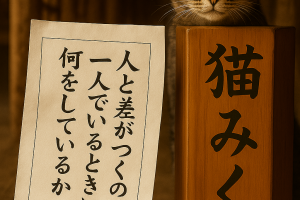 人と差がつくの
一人でいるとき
何をしているか
猫みく